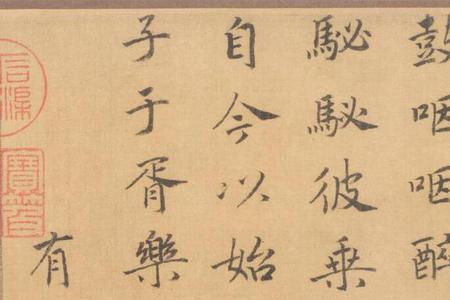 鼓咽咽醉
駜駜彼乘
自今以始
子于胥樂
有
石渠
寶笈